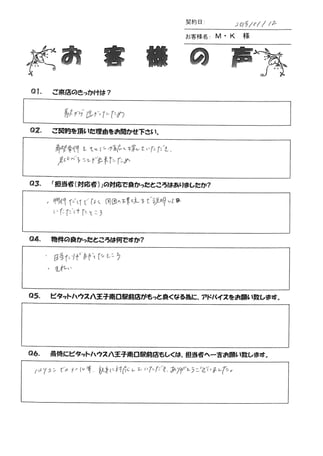 契約日: 2013/11/12
お客様名: M・K 様
お客様の声
Q1. ご来店のきっかけは？
駅から近かったため
Q2. ご契約を頂いた理由をお聞かせ下さい。
希望条件と
ことが出来たため
Q3. 「担当者(対応者)」の対応で良かったところはありましたか？
・物件だけでなく周囲の環境まで説明
いただけたところ
Q4. 物件の良かったところは何ですか？
・日当たりが良かったところ
・きれい
Q5. ピタットハウス八王子南口駅前店がもっと良くなる為に、アドバイスをお願い致します。
Q6. 最後にピタットハウス八王子南口駅前店もしくは、担当者へ一言お願い致します。
対応していただき、ありがとうございました。